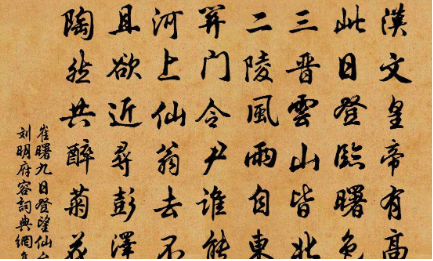 漢文皇帝有高
此日登臨曙色
三晉雲山皆北
二陵風雨自東
關门令尹誰能
河上仙翁去不
且欲近尋彭澤
陶然共醉菊花
崔曙九日登望仙台
刘明府容詞典網